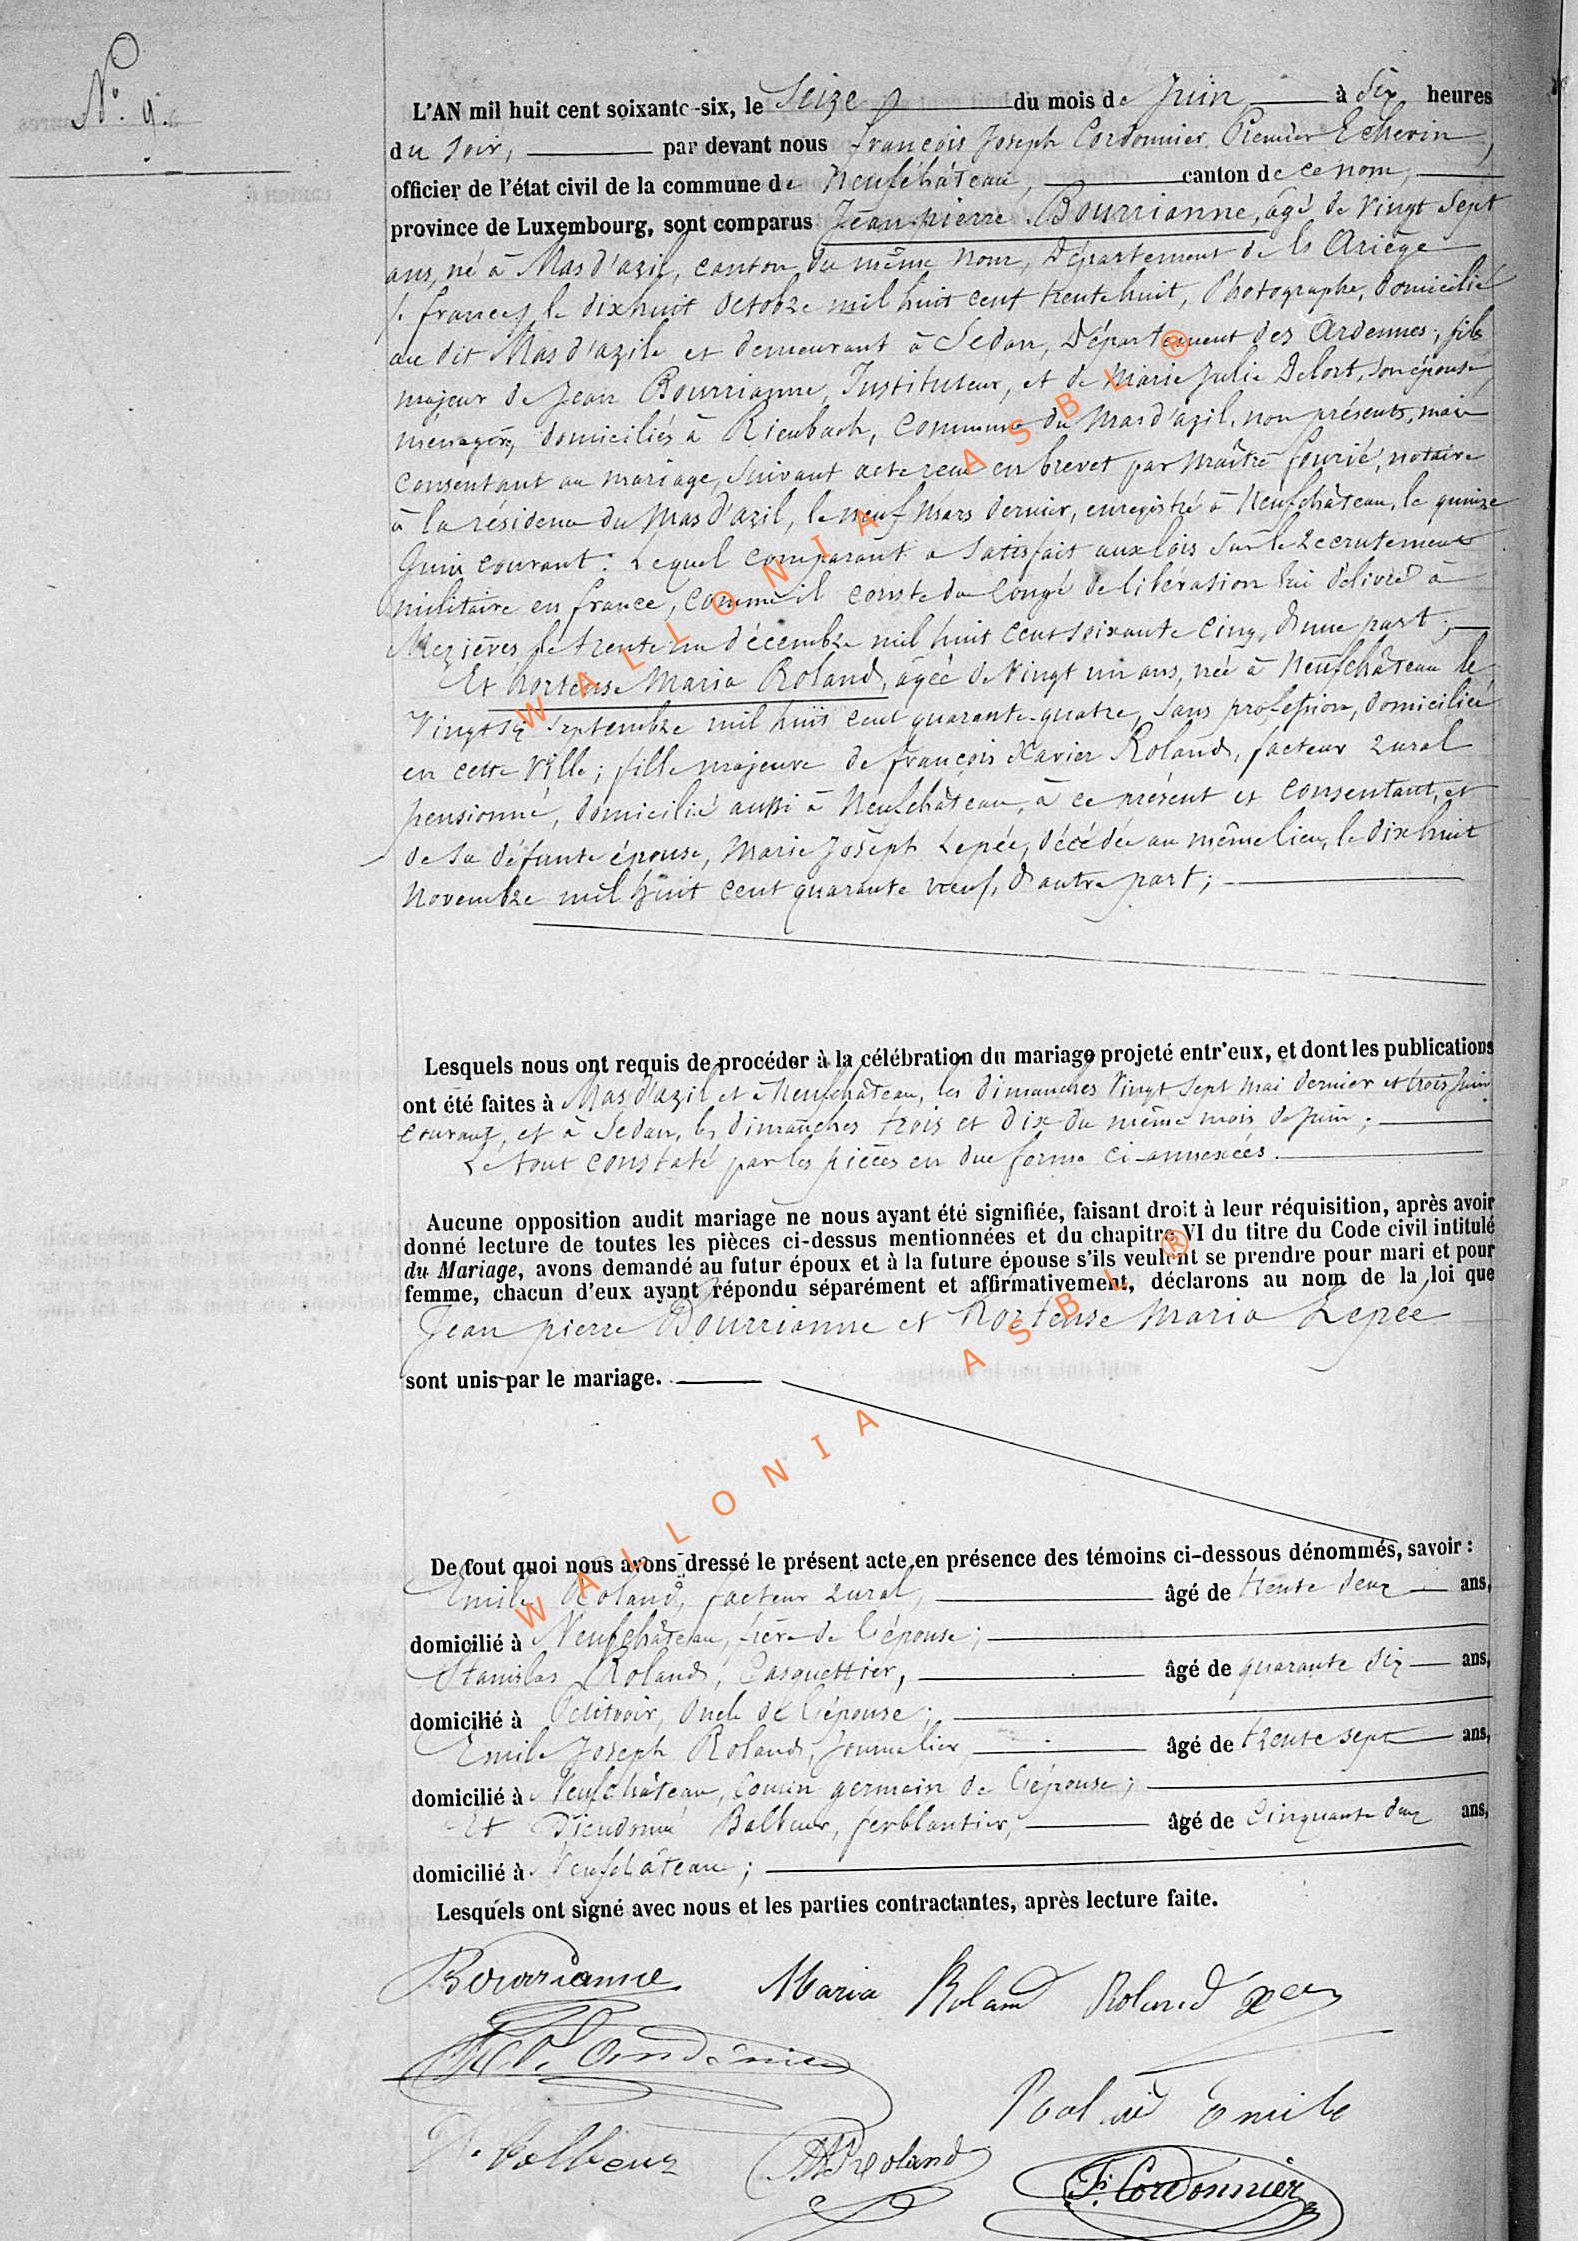 N° 9.
L'AN mil huit cent soixante-six, le Seize du mois de Juin à Six heures
du soir, par devant nous françois Joseph Cordonnier, Premier Echevin,
officier de l'état civil de la commune de Neufchâteau, canton de ce nom,
province de Luxembourg, sont comparus Jean pierre Bourrianne, âgé de vingt sept
ans, né à Mas d'azil, canton du même nom, Département de l'Ariège
(france) le dix huit octobre mil huit cent trente huit, Photographe, domicilié
au dit Mas d'azil et demeurant à Sedan, Département des Ardennes, fils
majeur de Jean Bourrianne, Instituteur, et de Marie Julie Delort, son épouse,
ménagère, domiciliés à Rieubach, commune du Mas d'azil, non présents, mais
consentant au mariage, suivant acte reçu en brevet par Maître fourié, notaire
à la résidence du Mas d'azil, le neuf Mars dernier, enregistré à Neufchâteau, le quinze
Juin courant. Lequel comparant a satisfait aux lois sur le recrutement
militaire en france, comme il conste du congé de libération lui délivré à
Mezières le trente un décembre mil huit cent soixante cinq, d'une part;
Et hortense Maria Roland, âgée de vingt un ans, née à Neufchâteau le
vingt six Septembre mil huit cent quarante-quatre, sans profession, domiciliée
en cette ville; fille majeure de françois Xavier Roland, facteur rural
pensionné, domicilié aussi à Neufchâteau, à ce présent et consentant, et
de sa défunte épouse, Marie Joseph Lepée, décédée au même lieu, le dix huit
Novembre mil huit cent quarante neuf, d'autre part;
Lesquels nous ont requis de procéder à la célébration du mariage projeté entr'eux, et dont les publications
ont été faites à Mas d'azil et à Neufchâteau, les dimanches vingt sept mai dernier et trois juin
courant, et à Sedan, les dimanches trois et dix du même mois de juin;
Le tout constaté par les pièces en due forme ci-annexées.
Aucune opposition audit mariage ne nous ayant été signifiée, faisant droit à leur réquisition, après avoir
donné lecture de toutes les pièces ci-dessus mentionnées et du chapitre VI du titre du Code civil intitulé
du Mariage, avons demandé au futur époux et à la future épouse s'ils veulent se prendre pour mari et pour
femme, chacun d'eux ayant répondu séparément et affirmativement, déclarons au nom de la loi que
Jean pierre Bourrianne et Hortense Maria Lepée
sont unis par le mariage.
De tout quoi nous avons dressé le présent acte en présence des témoins ci-dessous dénommés, savoir :
Emile Roland, facteur rural, âgé de trente deux ans,
domicilié à Neufchâteau, frère de l'épouse;
Stanislas Roland, Casquettier, âgé de quarante six ans,
domicilié à Petitvoir, Oncle de l'épouse;
Emile Joseph Roland, Journalier, âgé de trente sept ans,
domicilié à Neufchâteau, Cousin germain de l'épouse;
Et Dieudonné Balbeur, ferblantier, âgé de Cinquante deux ans,
domicilié à Neufchâteau;
Lesquels ont signé avec nous et les parties contractantes, après lecture faite.
Bourrianne Maria Roland Roland
Emile
D. Balbeur Roland
F. Cordonnier
WALLONIA ASBL ®
WALLONIA ASBL ®